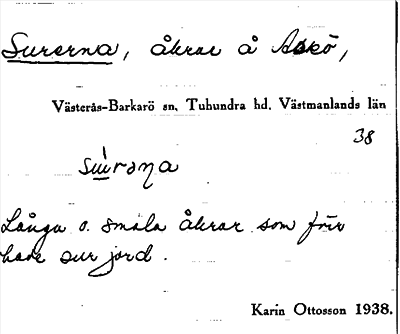 Surerna, åkrar å Askö,
Västerås-Barkarö sn. Tuhundra hd. Västmanlands län
38
Långa o. smala åkrar som
have sur jord.
Karin Ottosson 1938.